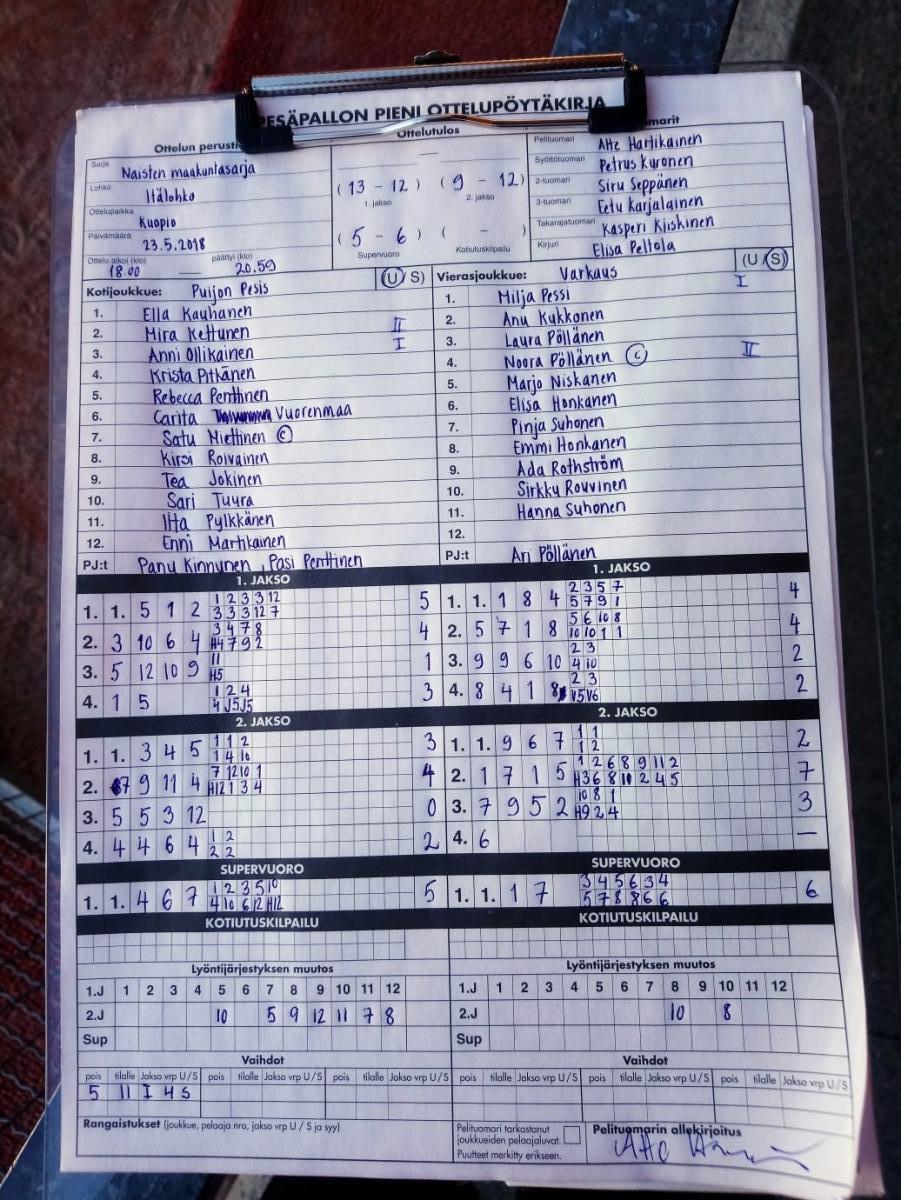 PESÄPALLON PIENI OTTELUPÖYTÄKIRJA
Ottelun perusti
Sarja Naisten maakuntasarja
Lohko Itälohko
Ottelupaikka Kuopio
Päivämäärä 23.5.2018
Ottelu alkoi (klo) 18.00 — päättyi (klo) 20.59
Ottelutulos
( 13 - 12 ) ( 9 - 12 )
1. jakso 2. jakso
( 5 - 6 ) ( - )
Supervuoro Kotiutuskilpailu
omarit
Pelituomari Atte Hartikainen
Syöttötuomari Petrus Kuronen
2-tuomari Siru Seppänen
3-tuomari Eetu Karjalainen
Takarajatuomari Kasperi Kiiskinen
Kirjuri Elisa Peltola
Kotijoukkue: Puijon Pesis (U/S)
1. Ella Kauhanen
2. Mira Kettunen II
3. Anni Ollikainen I
4. Krista Pitkänen
5. Rebecca Penttinen
6. Carita Vuorenmaa
7. Satu Miettinen (C)
8. Kirsi Roivainen
9. Tea Jokinen
10. Sari Tuura
11. Iita Pylkkänen
12. Enni Martikainen
PJ:t Panu Kinnunen, Pasi Penttinen
Vierasjoukkue: Varkaus (U/S)
1. Milja Pessi I
2. Anu Kukkonen
3. Laura Pöllänen
4. Noora Pöllänen (C) II
5. Marjo Niskanen
6. Elisa Honkanen
7. Pinja Suhonen
8. Emmi Honkanen
9. Ada Rothström
10. Sirkku Rouvinen
11. Hanna Suhonen
12.
PJ:t Ari Pöllänen
1. JAKSO
1 2 3 3 12
1. 1. 5 1 2 5
3 3 3 12 7
3 4 7 8
2. 3 10 6 4 4
H4 7 9 2
11
3. 5 12 10 9 1
H5
1 2 4
4. 1 5 3
4 J5 J5
1. JAKSO
2 3 5 7
1. 1. 1 8 4 4
5 7 9 1
5 6 10 8
2. 5 7 1 8 4
10 10 1 1
2 3
3. 9 9 6 10 2
4 10
2 3
4. 8 4 1 8 2
V5 V6
2. JAKSO
1 1 2
1. 1. 3 4 5 3
1 4 10
7 12 10 1
2. 7 9 11 4 4
H12 1 3 4
3. 5 5 3 12 0
1 2
4. 4 4 6 4 2
2 2
2. JAKSO
1 1
1. 1. 9 6 7 2
1 2
1 2 6 8 9 11 2
2. 1 7 1 5 7
H3 6 8 10 2 4 5
10 8 1
3. 7 9 5 2 3
H9 2 4
4. 6 —
SUPERVUORO
1 2 3 5 10
1. 1. 4 6 7 5
4 10 6 12 H12
SUPERVUORO
3 4 5 6 3 4
1. 1. 1 7 6
5 7 8 8 6 6
KOTIUTUSKILPAILU
KOTIUTUSKILPAILU
Lyöntijärjestyksen muutos
1.J 1 2 3 4 5 6 7 8 9 10 11 12
2.J 10 5 9 12 11 7 8
Sup
Lyöntijärjestyksen muutos
1.J 1 2 3 4 5 6 7 8 9 10 11 12
2.J 10 8
Sup
Vaihdot
pois tilalle Jakso vrp U/S pois tilalle Jakso vrp U/S pois tilalle Jakso vrp U/S
5 11 I 4 S
Vaihdot
pois tilalle Jakso vrp U/S pois tilalle Jakso vrp U/S pois tilalle Jakso vrp U/S
Rangaistukset (joukkue, pelaaja nro, jakso vrp U / S ja syy)
Pelituomari tarkastanut
joukkueiden pelaajaluvat.
Puutteet merkitty erikseen.
Pelituomarin allekirjoitus